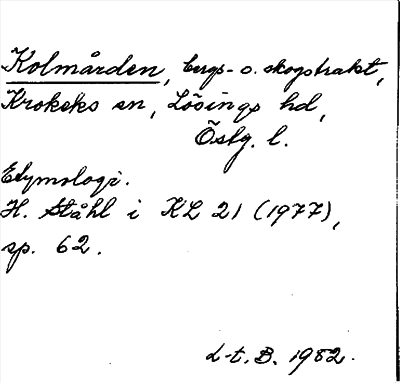 Kolmården, bergs- o. skogstrakt,
Krokeks sn, Lösings hd,
Östg. l.
Etymologi.
H. Ståhl i KL 21 (1977),
sp. 62.
L-t. B. 1982.